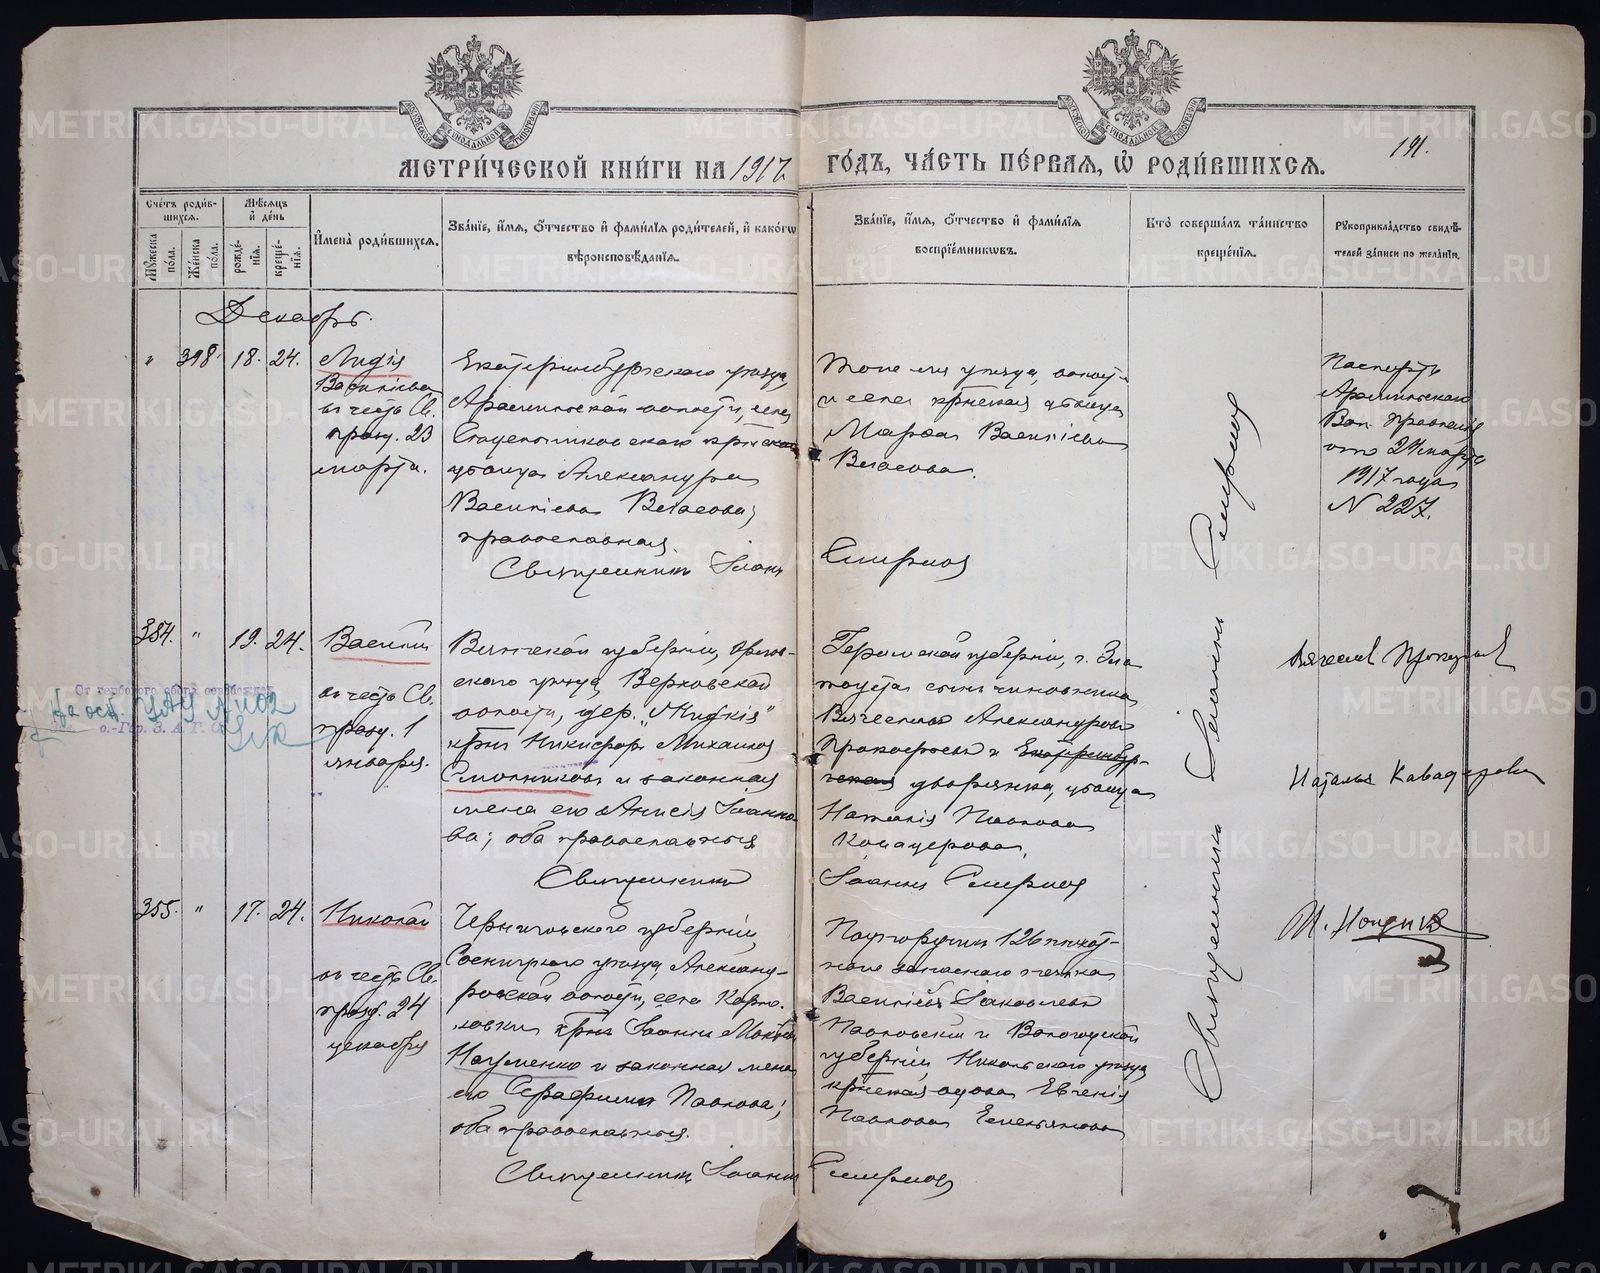 МЕТРИ́ЧЕСКОЙ КНИ́ГИ НА 1917 ГО́ДЪ, ЧА́СТЬ ПЕ́РВАЯ, Ѡ҆ РОДИ́ВШИХСЯ.
191.
Сче́тъ роди́вшихся.
Мꙋ́жеска по́ла.
Же́нска по́ла.
Мѣ́сяцъ и҆ де́нь
рожде́нїя.
креще́нїя.
И҆мена̀ роди́вшихся.
Зва́нїе, и҆́мя, ѻ҆́тчество и҆ фами́лїя роди́телей, и҆ како́гѡ вѣроисповѣ́данїя.
Зва́нїе, и҆́мя, ѻ҆́тчество и҆ фами́лїя воспрїе́мникѡвъ.
Кто̀ соверша́лъ та́инство креще́нїя.
Рꙋкоприкла́дство свидѣ́телей за́писи по жела́нїю.
Декабрь.
" 348. 18. 24.
Лидія
Васильева
въ честь Св.
празд. 23
марта.
Екатеринбургскаго уѣзда,
Арамильской волости, села
крестьянская
дѣвица Александра
Васильева Власова,
православная.
Священникъ Іоаннъ
Того же уѣзда, волости
и села крестьянская дѣвица
Марѳа Васильева
Власова.
Смирнов
Паспортъ
Арамильскаго
Вол. Правленія
отъ 24 марта
1917 года
N 227.
354. " 19. 24.
Василій
въ честь Св.
празд. 1
января.
Вятской губерніи, Орлов-
скаго уѣзда, Верховской
волости, дер.
крнъ Никифоръ Михаиловъ
Смольниковъ и законная
жена его Анисія Іоанно-
ва; оба православные
Священникъ
губерніи, г. Зла-
тоуста сынъ чиновника
Вячеславъ Александровъ
Прокофьевъ и Екатеринбур-
гская дворянка, дѣвица
Наталія Павлова
Кавадерова.
Іоаннъ Смирнов
Вячеслав Прокофьев
Наталья Кавадерова
355. " 17. 24.
Николай
въ честь Св.
празд. 24
декабря
Черниговской губерніи,
Сосницкаго уѣзда, Александ-
ровской волости, села
крнъ Іоаннъ
Науменко и законная жена
его Серафима Павлова;
оба православные.
Священникъ Іоаннъ
Подпоручикъ 126 пѣхот-
наго запаснаго полка
Василій Іаковлевъ
и Вологодской
губерніи, Никольскаго уѣзда,
крнская вдова Евгенія
Павлова Емельянова
Смирнов
Священникъ Іоаннъ Смирнов
От гербового сбора освобожден
METRIKI.GASO-URAL.RU